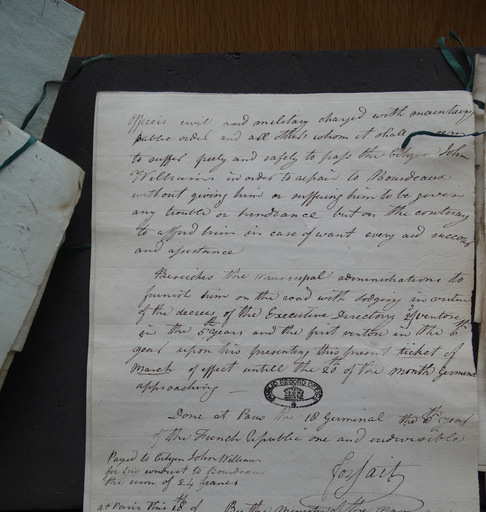 Officers civil and military charged with maintaing
public order and all others whom it shall
to suffer freely and safely to pass the Citizen John
Williams in order to repair to Bourdeaux
without giving him or suffering him to be given
any trouble or hindrance but on the contrary
to afford him in case of want every aid succour
and assistance
the municipal administrations to
furnish him on the road with lodging in virtue
of the decrees of the Executive Directory
in the 5th years and the first ventose in the 6th
year upon his presenting this present ticket of
March of effect untill the 20th of the month Germinal
approaching
Done at Paris the 18 Germinal the 6th year
of the French Republic one and indivisible
Payed to Citizen John William
for his conduct to Bourdeaux
the sum of 24 francs
Forfait
at Paris this 18th of By the Minister of the